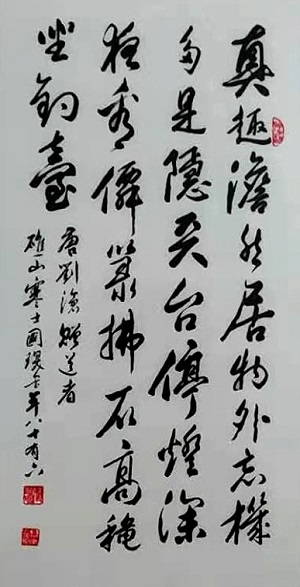 真趣澹然居物外忘機
多是隱天台停燈深
夜看僊籙拂石高穐
坐釣臺
唐劉滄贈道者
確山寒士國年八十有六